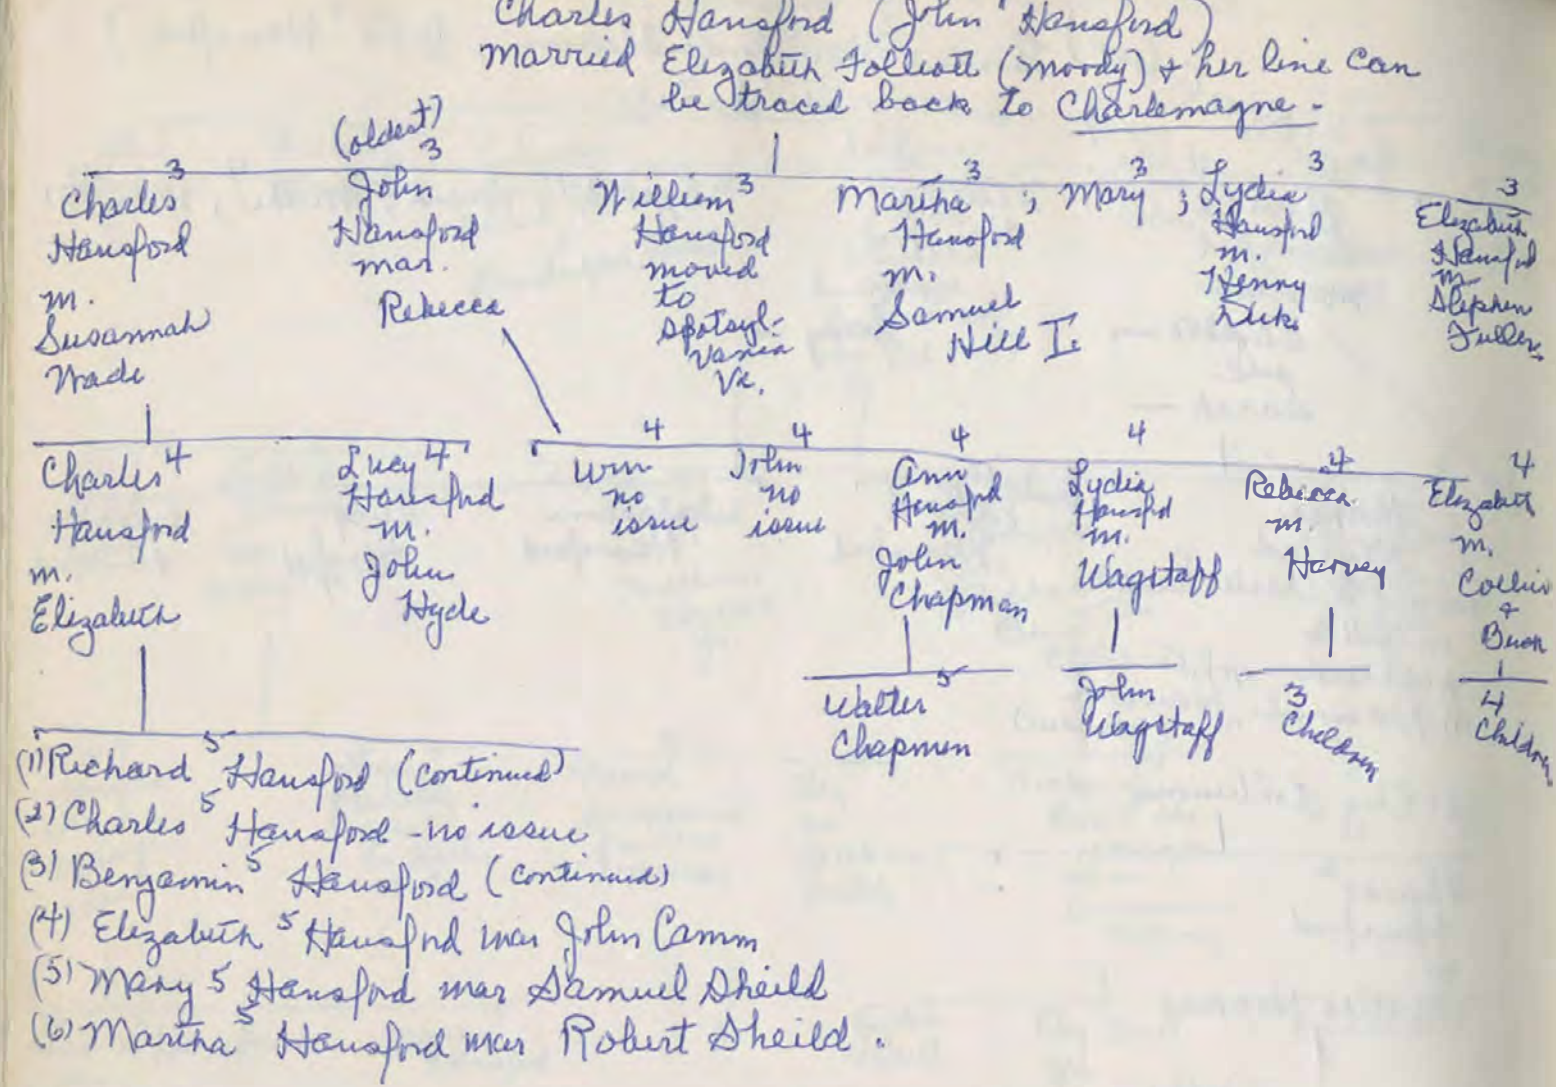 Charles Hansford (John¹ Hansford)
Married Elizabeth Folliott (Moody) & her line can
be traced back to Charlemagne -
Charles³
Hansford
m.
Susannah
Wade
(oldest)
John³
Hansford
mar.
Rebecca
William³
Hansford
moved
to
Spotsyl-
vania
Va.
Martha³ ;
Hansford
m.
Samuel
Hill I.
Mary³ ;
Lydia³
Hansford
m.
Henny
Elizabeth³
Hansford
m
Stephen
Fuller
Charles⁴
Hansford
m.
Elizabeth
Lucy⁴
Hansford
m.
John
Hyde
Wm⁴
no
issue
John⁴
no
issue
Ann⁴
Hansford
m.
John
Chapman
Lydia⁴
Hansford
m.
Wagstaff
Rebecca⁴
m.
Harvey
Elizabeth⁴
m.
&
Walter⁵
Chapman
John
Wagstaff
3
Children
4
Children
(1) Richard⁵ Hansford (continued)
(2) Charles⁵ Hansford - no issue
(3) Benjamin⁵ Hansford (continued)
(4) Elizabeth⁵ Hansford mar John Camm
(5) Mary⁵ Hansford mar Samuel Sheild
(6) Martha⁵ Hansford mar Robert Sheild.